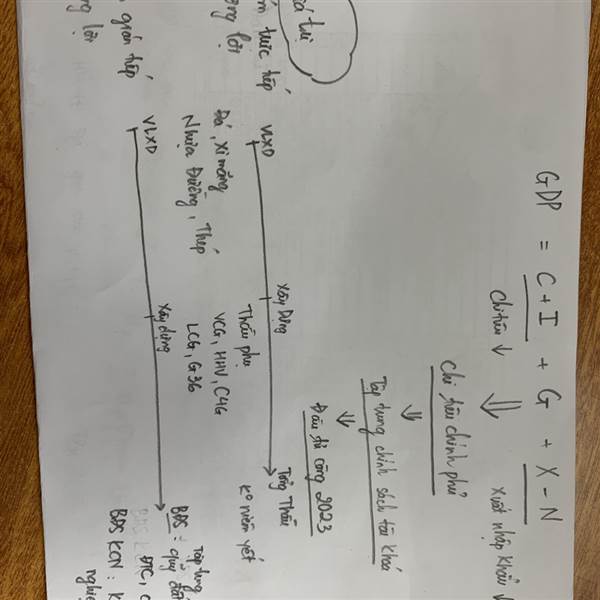 GDP = C + I + G + X - N
Chi tiêu ↓ ⇓ Xuất nhập khẩu
Chi tiêu chính phủ
⇓
Tập trung chính sách tài khoá
⇓
Đầu tư công 2023
VLXD Xây Dựng Tổng Thầu
Đá, xi măng Thầu phụ K° niêm yết
Nhựa Đường, Thép VCG, HHV, C4G
LCG, G36
VLXD Xây dựng BĐS:
Tập trung
quỹ đất
BĐS KCN: K
tiếp
lợi
gián tiếp
lợi